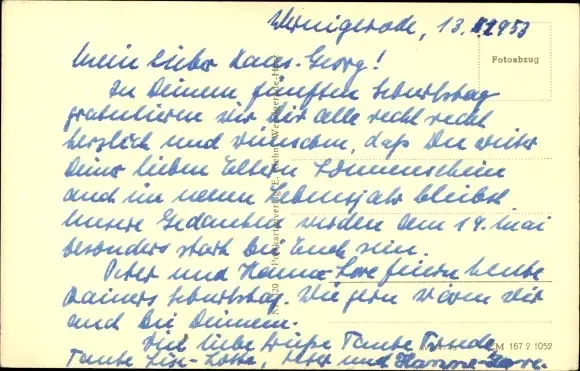 Wernigerode, 13. 1953
Fotoabzug
Mein lieber Hans-Georg!
Zu Deinem fünften Geburtstag
gratulieren wir Dir alle recht recht
herzlich und wünschen, daß Du weiter
Deiner lieben Eltern Sonnenschein
auch im neuen Lebensjahr bleibst
Unsere Gedanken werden am 14. Mai
besonders stark bei Euch sein.
Peter und Hanne-Lore feiern heute
Rainers Geburtstag. Wie gern wären wir
auch bei Deinem.
Viel liebe Grüße Tante
Tante Lise-Lotte, Peter und Hanne-Lore.
CM 167 2 1052